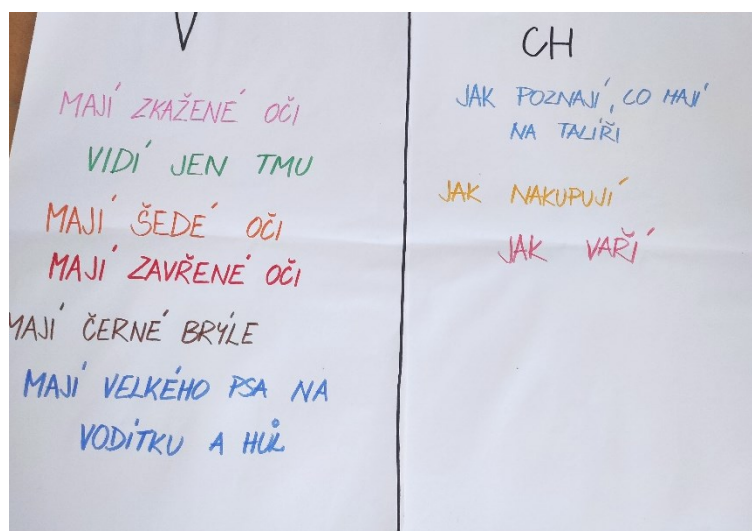 V
MAJÍ ZKAŽENÉ OČI
VIDÍ JEN TMU
MAJÍ ŠEDÉ OČI
MAJÍ ZAVŘENÉ OČI
MAJÍ ČERNÉ BRÝLE
MAJÍ VELKÉHO PSA NA
VODÍTKU A HŮL
CH
JAK POZNAJÍ, CO MAJÍ
NA TALÍŘI
JAK NAKUPUJÍ
JAK VAŘÍ